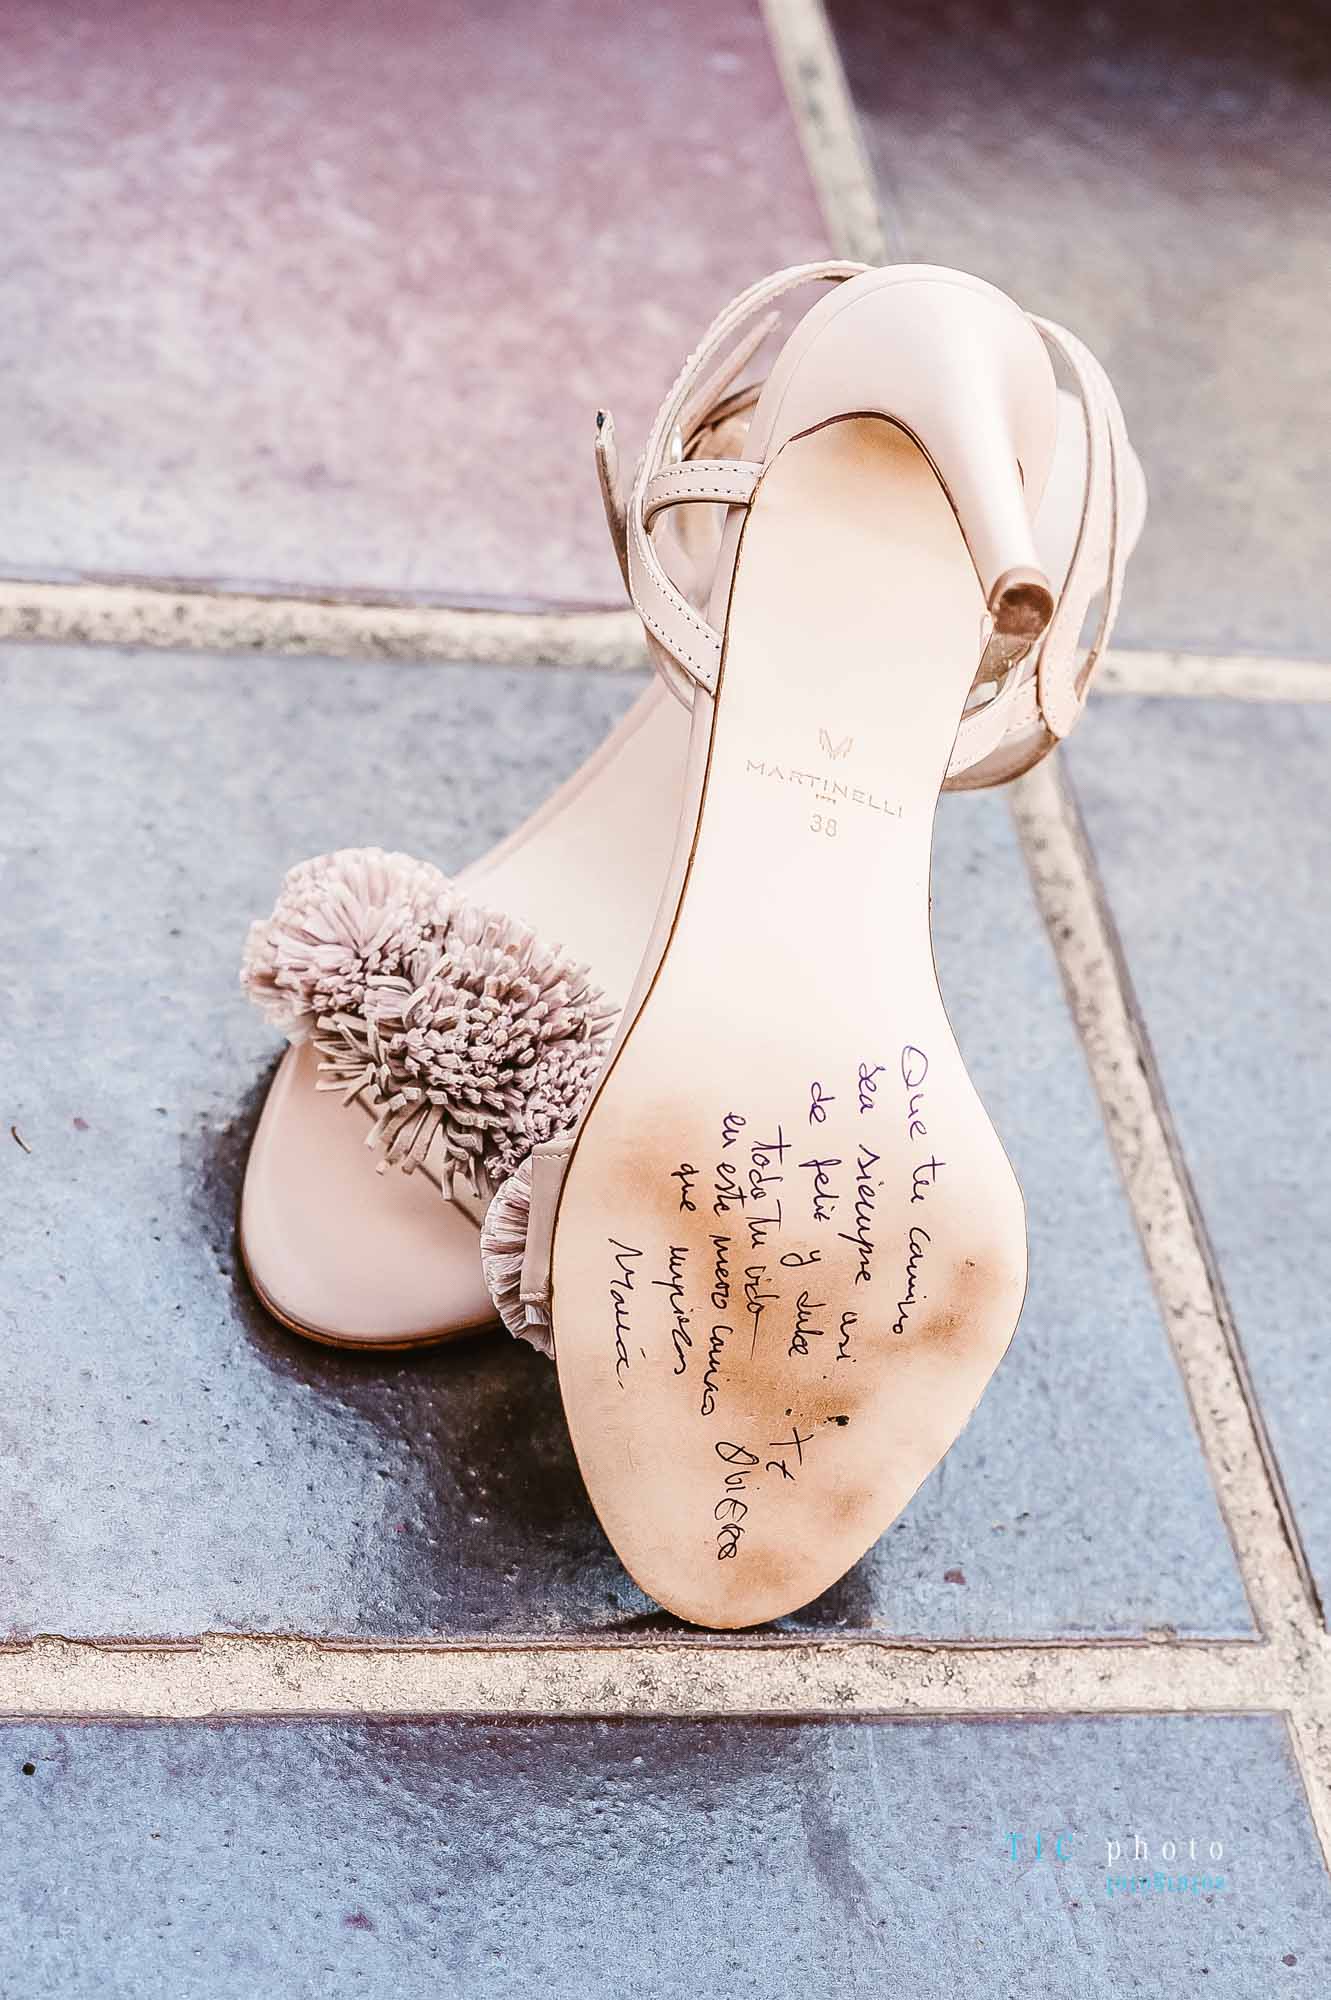 MARTINELLI
38
Que tu camino
sea siempre asi
de feliz y dulce
todo tu vida
en este nuevo camino
que empiezas
Mamá.
TE
QUIERO
TIC photo
fotógrafos